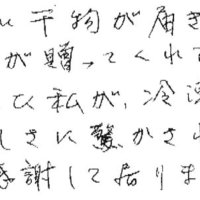 い干物が届き
が贈ってくれて
ひ私が、冷凍
しさに驚かされ
感謝して居りま